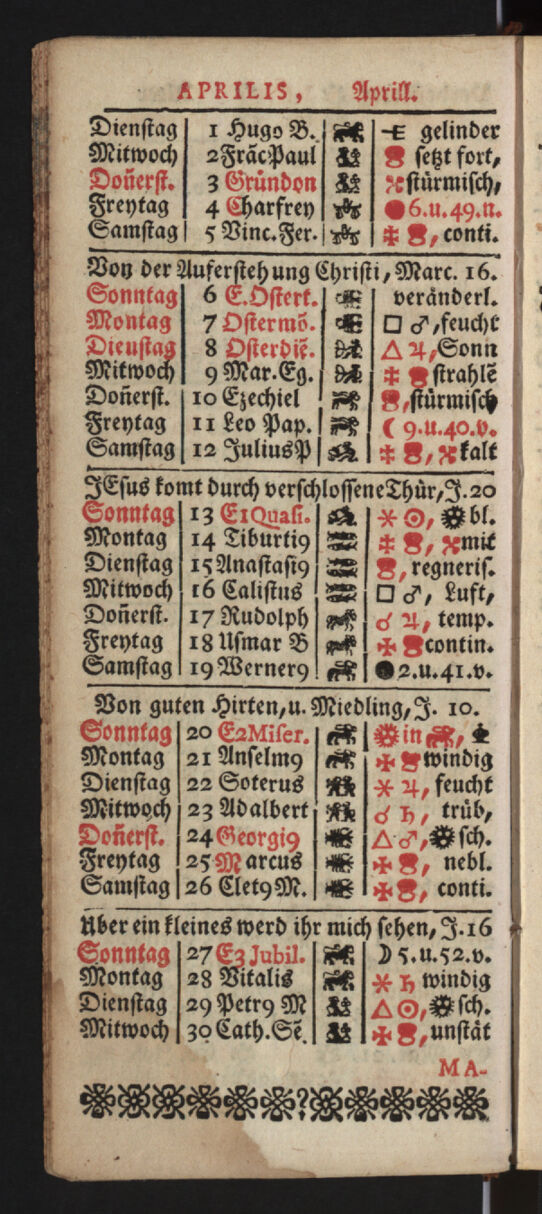 APRILIS, Aprill.
Dienstag 1 Hugo B. gelinder
Mitwoch 2 Frãc Paul setzt fort,
Doñerst. 3 Gründon stürmisch,
Freytag 4 Charfrey 6.u.49.n.
Samstag 5 Vinc.Fer. conti.
Von der Aufersteh ung Christi, Marc. 16.
Sonntag 6 E.Ostert. veränderl.
Montag 7 Ostermõ. □ ♂, feucht
Dieustag 8 Osterdiẽ. △ ♃, Sonn
Mitwoch 9 Mar.Eg. strahlẽ
Doñerst. 10 Ezechiel stürmisch
Freytag 11 Leo Pap. ☾ 9.u.40.v.
Samstag 12 Julius P kalt
JEsus komt durch verschlossene Thür, J.20
Sonntag 13 E1Quasi. ⚹ ☉, bl.
Montag 14 Tiburti9 mit
Dienstag 15 Anastasi9 regneris.
Mitwoch 16 Calistus □ ♂, Luft,
Doñerst. 17 Rudolph ☌ ♃, temp.
Freytag 18 Usmar B contin.
Samstag 19 Werner9 2.u.41.v.
Von guten Hirten, u. Miedling, J. 10.
Sonntag 20 E2Miser. in
Montag 21 Anselm9 windig
Dienstag 22 Soterus ⚹ ♃, feucht
Mitwoch 23 Adalbert ☌ ♄, trüb,
Doñerst. 24 Georgi9 △ ♂, sch.
Freytag 25 Marcus nebl.
Samstag 26 Clet9 M. conti.
Uber ein kleines werd ihr mich sehen, J.16
Sonntag 27 E3 Jubil. ☽ 5.u.52.v.
Montag 28 Vitalis ⚹ ♄ windig
Dienstag 29 Petr9 M △ ☉, sch.
Mitwoch 30 Cath.Sẽ. unstät
MA-